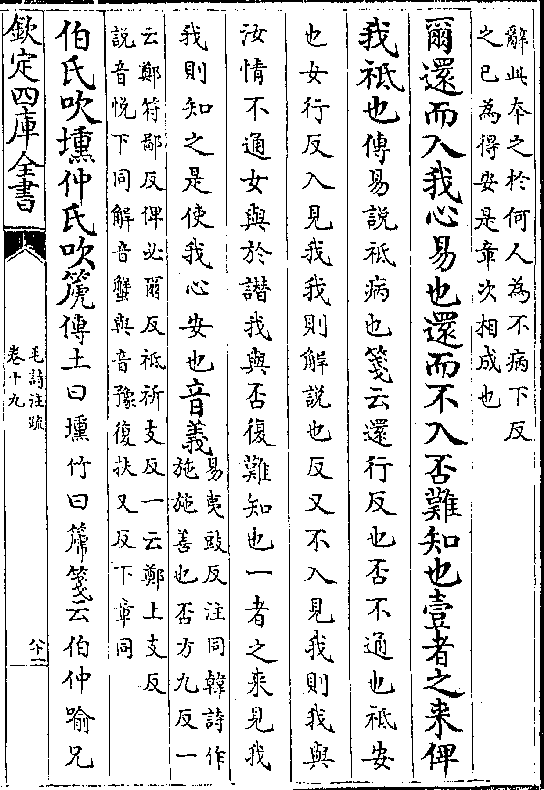 辭此本之於何人為不病下反
之已為得安是章次相成也
爾還而入我心易也還而不入否難知也壹者之来俾
我祇也傳易説祇病也箋云還行反也否不通也祇安
也女行反入見我我則解説也反又不入見我則我與
汝情不通女與於譖我與否復難知也一者之来見我
我則知之是使我心安也音義易夷豉反注同韓詩作
施施善也否方九反一
云鄭符鄙反俾必爾反祇祈支反一云鄭上支反
説音悦下同解音蟹與音豫復扶又反下章同
伯氏吹壎仲氏吹篪傳土曰壎竹曰篪箋云伯仲喻兄
欽定四庫全書
毛詩注疏
卷十九